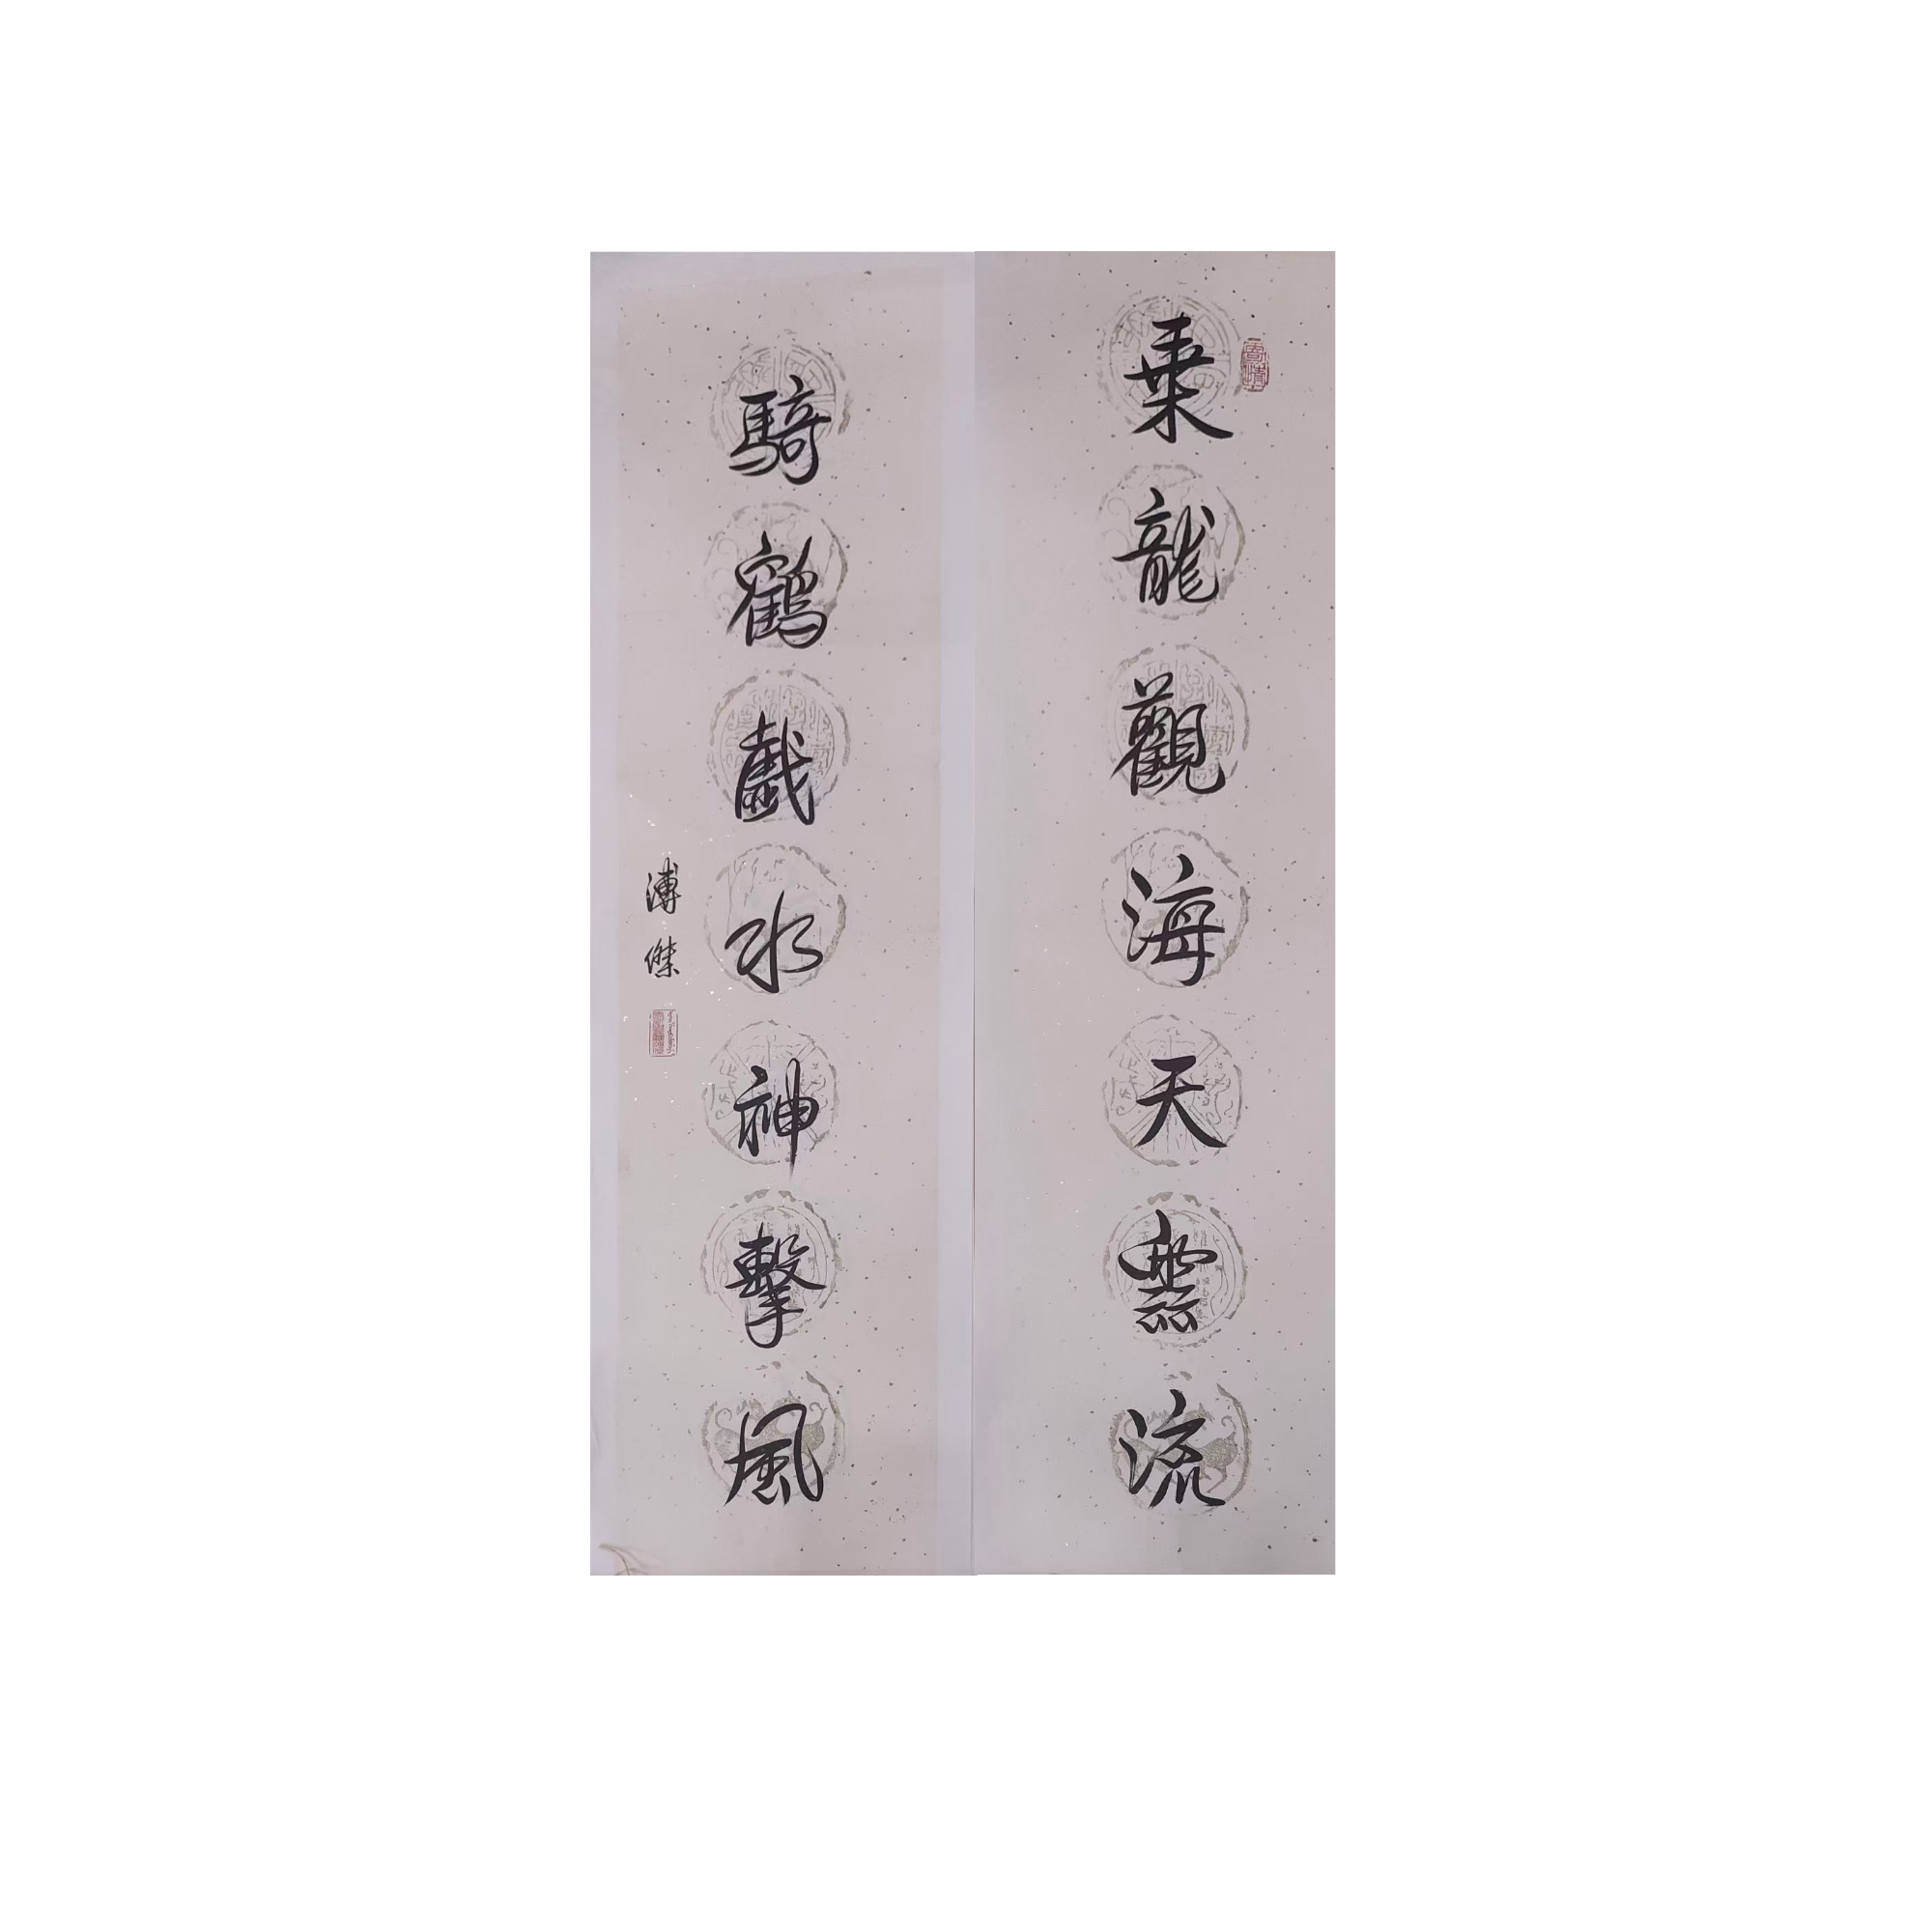 乗龍觀海天霛流
騎鶴戲水神擊風
溥傑